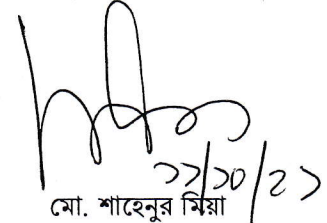 ১১/১০/২১
মো. শাহেনুর মিয়া